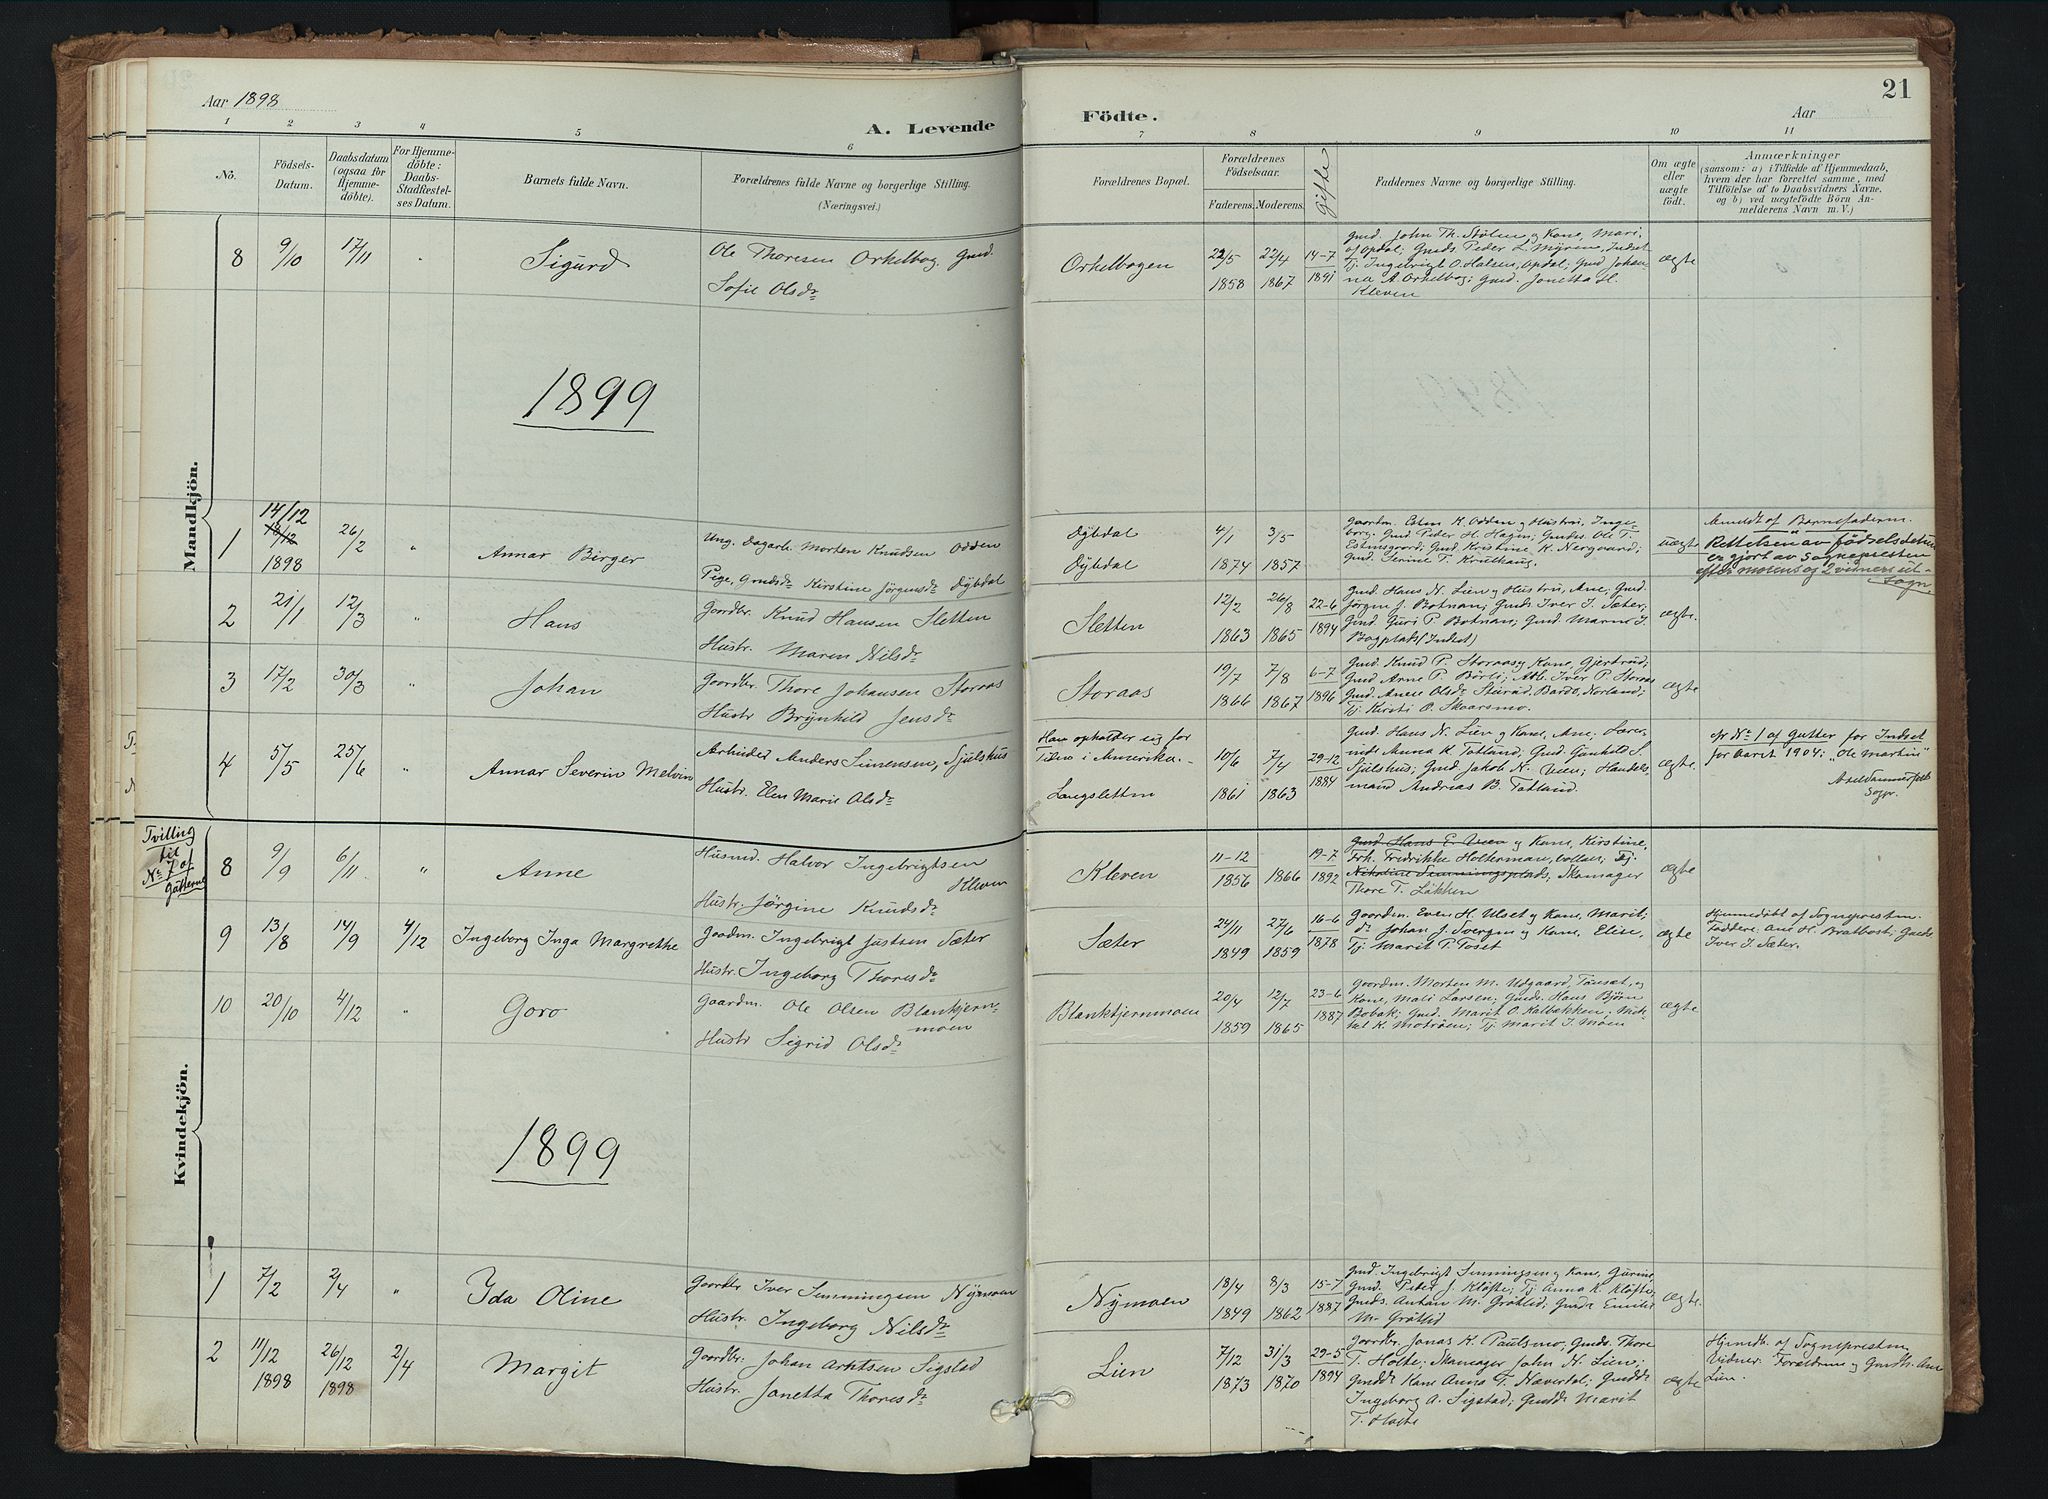 Aar 1898
A. Levende
Födte.
Aar
21
1 2 3 4 5 6 7 8 9 10 11
No.
Födsels-
Datum.
Daabsdatum
(ogsaa for
Hjemme-
döbte).
For Hjemme-
döbte:
Daabs-
Stadfæstel-
ses Datum.
Barnets fulde Navn.
Forældrenes fulde Navne og borgerlige Stilling.
(Næringsvei.)
Forældrenes Bopæl.
Forældrenes
Födselsaar.
Faderens. Moderens.
Gifte
Faddernes Navne og borgerlige Stilling.
Om ægte
eller
uægte
födt.
Anmærkninger
(saasom: a) i Tilfælde af Hjemmedaab,
hvem der har forrettet samme, med
Tilföielse af to Daabsvidners Navne,
og b) ved uægtefödte Börn An-
melderens Navn m. V.)
Mandkjön.
8 9/10 17/11 " Sigurd
Ole Thoresen Orkelbog, Gmd.
Sofie Olsdr
Orkelbogen
22/5 1858
22/4 1867
14-7 1891
Gmd. John Th. Stölen og Kone, Mari,
af Opdal; Gmds Peder L. Myren, Indset
Tj. Ingebrigt O. Halsen, Opdal; Gmd Johan-
na A. Orkelbog; Gmd. Jonetta H.
Kleven
ægte
1899
1 14/12
18/12
1898
26/2 " Annar Birger
Ung. Dagarb. Morten Knudsen Odden
Pige, Gmdsdr Kirstine Jörgensdr Dybdal
Dybdal
Dybdal
4/1 1874
3/5 1857
Gaardm. Esten K. Odden og Hustru, Inge-
borg; Gmd. Peder H. Hagen; Gmds. Ole T.
Estensgaard; Gmd. Kristine K. Nergaard;
Gmd. Serine T. Krulhaug.
uægte
Anmeldt af Barnefaderen.
Rettelsen av födselsdatum
er gjort av Sognepresten
efter morens og 2 vidners ut-
sagn.
2 21/1 12/3 " Hans
Gaardbr. Knud Hansen Sletten
Hustr. Maren Nilsdr
Sletten
12/2 1863
26/8 1865
22-6 1894
Gmd. Hans N. Lien og Hustru, Ane; Gmd.
Jörgen J. Botnan; Gmds Iver I. Sæter;
Gmd. Guri P. Botnan; Gmd. Marne I.
Bagplads (Indset)
ægte.
3 17/2 30/3 " Johan
Gaardbr. Thore Johansen Storaas
Hustr Brynhild Jensdr
Storaas
19/7 1866
7/8 1867
6-7 1896
Gmd. Knud P. Storaas og Kone, Gjertrud;
Gmd Arne P. Börli; Arb. Iver P. Storaas
Gmd. Anne Olsdr Sturad, Bardo, Norland;
Tj. Kirsti O. Skaarsmo.
ægte
4 5/5 25/6 " Annar Severin Melvin
Arbeider Anders Simensen, Sjulshus
Hustr. Elen Marie Olsdr
Han opholder sig for
Tiden i Amerika.
Langsletten
10/6 1861
7/4 1863
29-12 1884
Gmd. Hans N. Lien og Kone, Ane; Lærer-
inde Anna K. Totland; Gmd. Gunhild S.
Sjulshus; Gmd. Jakob N. Veen; Handels-
mand Andreas B. Totland.
ægte.
cfr No 1 af Gutter for Indset
for Aaret 1904: "Ole Martin"
Sogpr.
Kvindekjön.
Tvilling
til
No 7 af
Gutterne
8 9/9 6/11 " Anne
Husmd. Halvor Ingebrigtsen
Kleven
Hustr. Jörgine Knudsdr
Kleven
11-12 1856
1866
19-7 1892
Gmd Hans E. Veen og Kone, Kirstine,
Frk. Fredrikke Holterman, Vollan; Tj.
Nikoline Semmingsplads; Skomager
Thore T. Løkken
ægte
9 13/8 14/9 4/12 Ingeborg Inga Margrethe
Gaadm. Ingebrigt Justsen Sæter
Hustr. Ingeborg Thoresdr
Sæter
24/11 1849
27/6 1859
16-6 1878
Gaardm. Even H. Ulset og Kone, Marit;
do Johan J. Svergm og Kone, Elise,
Tj. Marit P. Toset
ægte
Hjemmedöbt af Sognepresten.
Faddere: Ane H. Bratbost; Gmds
Iver I. Sæter.
10 20/10 4/12 " Goro
Gaardm. Ole Olsen Blanktjern-
moen
Hustr Sigrid Olsdr
Blanktjernmoen
20/4 1859
12/7 1865
23-6 1887
Gaardm. Morten M. Udgaard, Tönset, og
Kone, Mali Larsen; Gmds. Hans Björn
Bobak; Gmd. Marit O. Kalbækken; Mik-
kel K. Motröen; Tj. Marit J. Moen
ægte
1899
1 7/2 2/4 " Ida Oline
Gaardbr Iver Semmingsen Nymoen
Hustr. Ingeborg Nilsdr
Nymoen
18/4 1849
8/3 1862
15-7 1887
Gmd. Ingebrigt Semmingsen og Kone, Gurine;
Gmd. Peter J. Kløfte; Tj Anna K. Kløfte;
Gmds. Anton M. Grötlid; Gmdr Emilie
M. Grötlid
ægte.
2 11/12
1898
26/12
1898
2/4 Margit
Gaardbr. Johan Arntsen Sigstad
Hustr. Janetta Thoresdr
Lien
7/12 1873
31/3 1870
29-5 1894
Gaardbr. Jonas K. Paulsmo; Gmds. Thore
T. Holte; Skomager John N. Lien;
Gmddr Kari Anna T. Næverdal; Gmddr
Ingeborg A. Sigstad; Gmddr Marit
T. Holte
ægte
Hjemdb. af Sognepresten
Vidner: Forældrene og Gmdk. Ane
Lien.